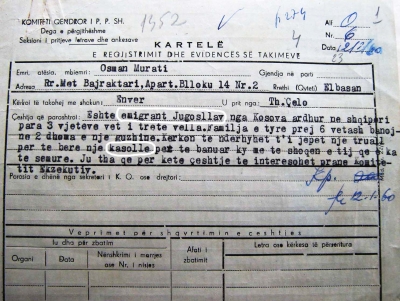 1952 √ p274 1
KOMITETI QENDROR I P. P. SH.
Dega e përgjithëshme
Seksioni i pritjeve letrave dhe ankesave
4
Alf O
Nr. 6
Data 12/1/60
23
KARTELË
E REGJISTRIMIT DHE EVIDENCËS SË TAKIMEVE
Emri, atësia, mbiemri: Osman Murati Gjendja në parti
Adresa Rr.Met Bajraktari,Apart.Blloku 14 Nr.2 Rrethi (Qyteti) Elbasan
Kërkoi të takohej me shokun: Enver U prit nga: Th.Çelo
Çështja që parashtroi: Eshte emigrant Jugosllav nga Kosova ardhur ne shqiperi
para 3 vjeteve vet i trete vella.Familja e tyre prej 6 vetash banoj-
ne 2 dhoma e nje kuzhine.Kerkon te nderhyhet t'i jepet nje truall
per te bere nje kasolle per te banuar ky me te shoqen e tij qe e ka
te semure. Ju tha qe per kete çeshtje te interesohet prane Komite-
tit Ekzekutiv.
Porosia e dhënë nga sekretari i K. Q. ose drejtori:
12-1-60
Veprimet për shqyrtimin e çështjes
Iu dha për zbatim
Afati i zbatimit
Letra ose kërkesa të përsëritura
Organi Data Nënshkrimi i marrjes ose Nr. i nisjes